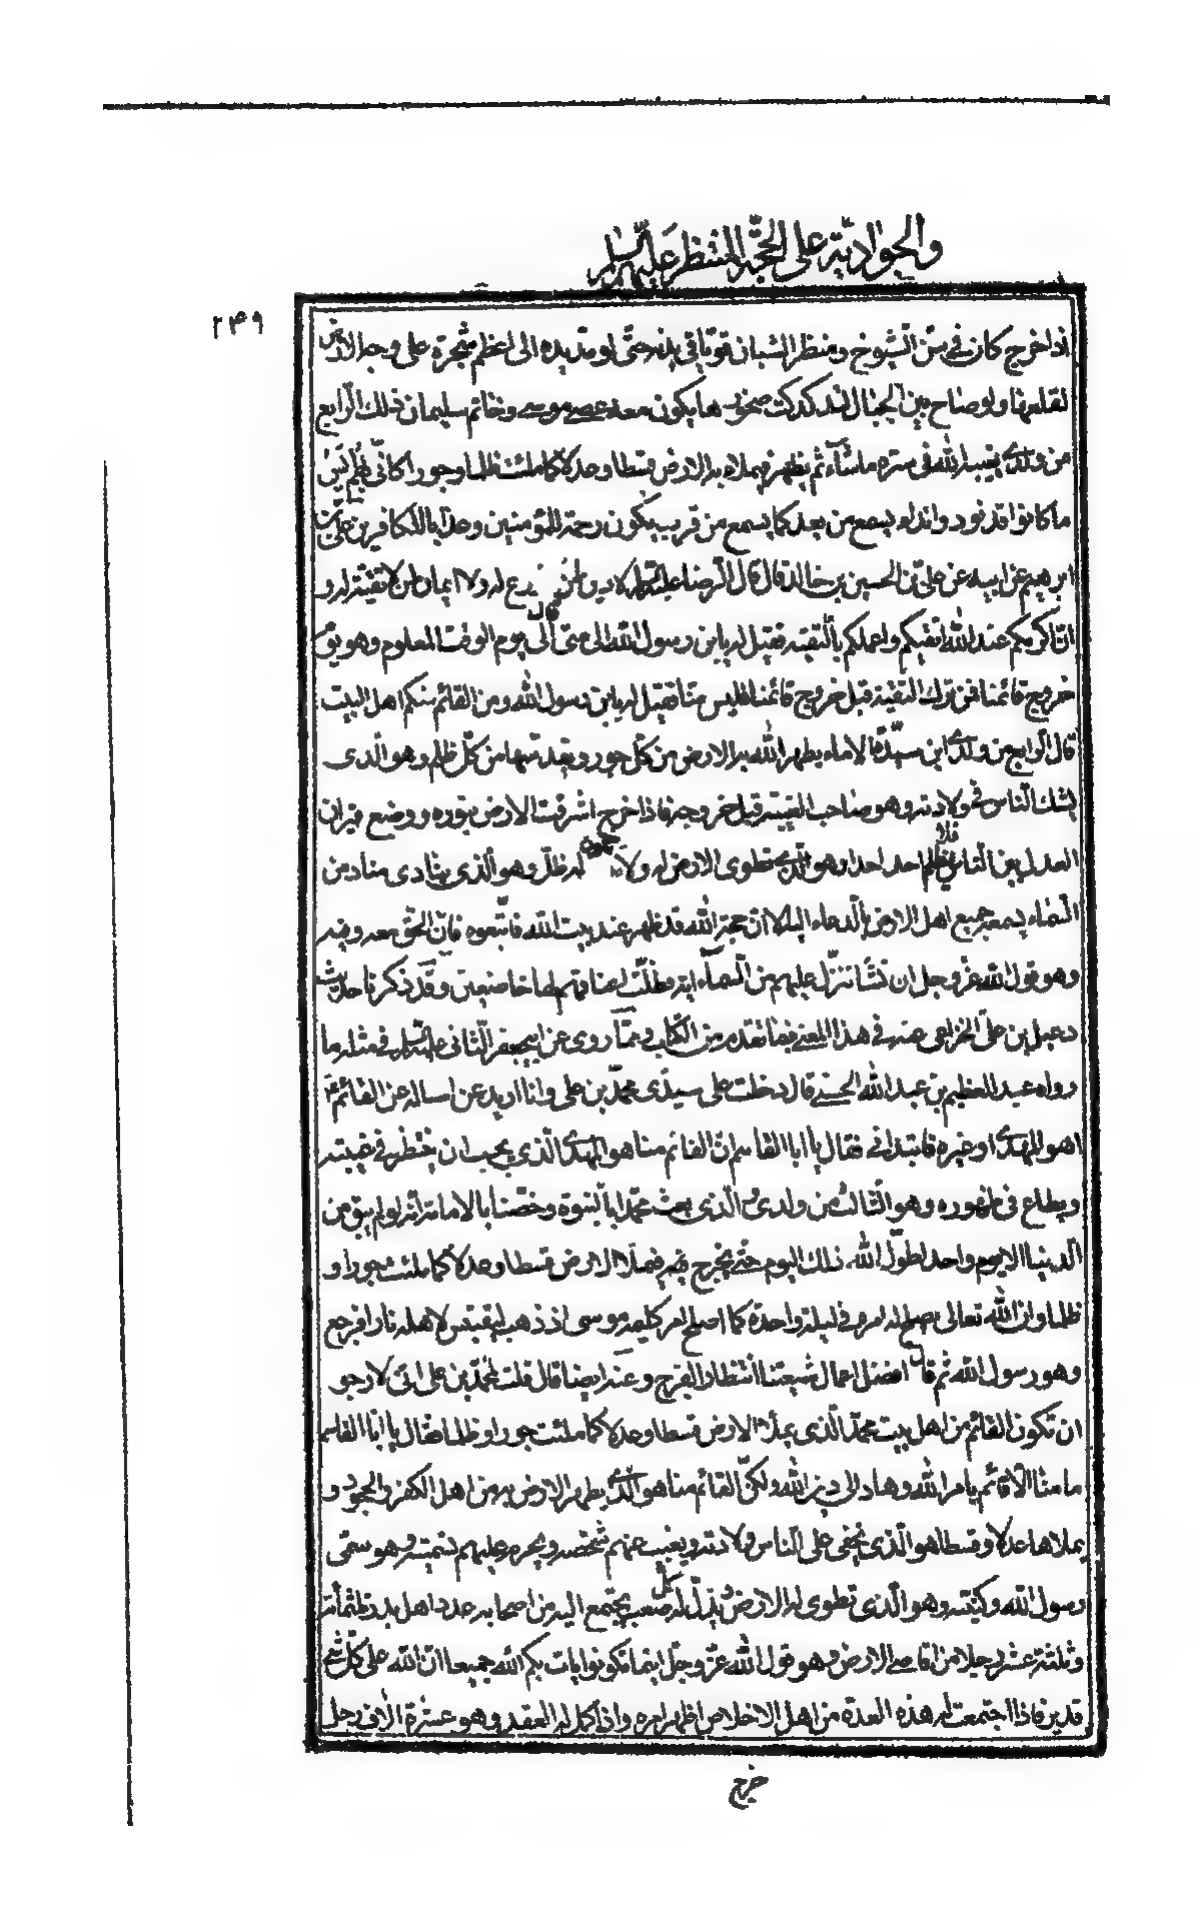 والجوادية على الحجة المنتظر عليهم السلام
٢٤٩
اذا خرج كان في سن الشيوخ ومنظر الشبان قويا في بدنه حتى لو مد يده الى اعظم شجرة على وجه الارض
لقلعها ولو صاح بين الجبال لتدكدكت صخورها يكون معه عصى موسى وخاتم سليمان ذلك الرابع
من ولدي يغيبه الله في ستره ما شاء ثم يظهر فيملاء به الارض قسطا وعدلا كما ملئت ظلما وجورا كاني بهم آيس
ما كانوا قد نودوا نداء يسمع من بعد كما يسمع من قرب يكون رحمة للمؤمنين وعذابا للكافرين علي بن
ابرهيم عن ابيه عن علي بن الحسين بن خالد قال قال الرضا عليه السلام لا دين لمن لا ورع له ولا ايمان لمن لا تقية له و
ان اكرمكم عند الله اتقيكم واعملكم بالتقية فقيل له يابن رسول الله الى متى قال الى يوم الوقت المعلوم وهو يوم
خروج قائمنا فمن ترك التقية قبل خروج قائمنا فليس منا فقيل له يابن رسول الله ومن القائم منكم اهل البيت
قال الرابع من ولدي ابن سيدة الاماء يطهر الله به الارض من كل جور ويقدسها من كل ظلم وهو الذى
يشك الناس في ولادته وهو صاحب الغيبة قبل خروجه فاذا خرج اشرقت الارض بنوره ووضع ميزان
العدل بين الناس فلا يظلم احد احدا وهو الذي تطوى الارض له ولا يكون له ظل وهو الذي ينادى مناد من
السماء يسمعه جميع اهل الارض بالدعاء اليه الا ان حجة الله قد ظهر عند بيت الله فاتبعوه فان الحق معه وفيه
وهو قول الله عز وجل ان نشا ننزل عليهم من السماء اية فظلت اعناقهم لها خاضعين وقد ذكرنا حديث
دعبل بن علي الخزاعى عنه في هذا المعنى فيما تقدم من الكتاب ومما روى عن ابيجعفر الثانى عليه السلام في مثله ما
رواه عبد العظيم بن عبد الله الحسني قال دخلت على سيدى محمد بن على وانا اريد عن اساله عن القائم ع
اهو المهدي او غيره فابتدانى فقال يا ابا القاسم ان القائم منا هو المهدي الذي يجب ان ينتظر في غيبته
ويطاع فى ظهوره وهو الثالث من ولدى والذى بعث محمدا بالنبوة وخصنا بالامامة انه لو لم يبق من
الدنيا الا يوم واحد لطول الله ذلك اليوم حتى يخرج فيه فيملا الارض قسطا وعدلا كما ملئت جورا و
ظلما وان الله تعالى يصلح له امره في ليلة واحدة كما اصلح امر كليمه موسى اذ ذهب ليقتبس لاهله نارا فرجع
وهو رسول الله ثم قال افضل اعمال شيعتنا انتظار الفرج وعنه ايضا قال قلت لمحمد بن على انى لارجو
ان تكون القائم من اهل بيت محمد الذى يملأ الارض قسطا وعدلا كما ملئت جورا وظلما فقال يا ابا القاسم
ما منا الا قائم بامر الله وهاد الى دين الله ولكن القائم منا هو الذي يطهر الارض به من اهل الكفر والجحود و
يملاها عدلا وقسطا هو الذي يخفى على الناس ولادته ويغيب عنهم شخصه ويحرم عليهم تسميته وهو سمى
رسول الله وكنيته وهو الذي تطوى له الارض ويذل له كل صعب يجتمع اليه من اصحابه عدد اهل بدر ثلثمأة
وثلثة عشر رجلا من اقاصي الارض وهو قول الله عز وجل اينما تكونوا يات بكم الله جميعا ان الله على كل شئ
قدير فاذا اجتمعت له هذه العدة من اهل الاخلاص اظهر امره واذا كمل له العقد وهو عشرة الاف رجل
خرج